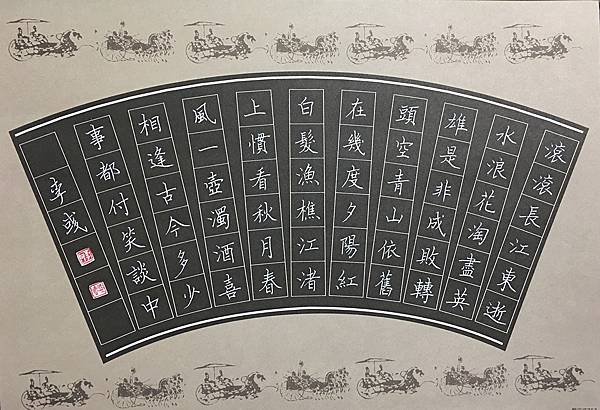 滾滾長江東逝
水浪花淘盡英
雄是非成敗轉
頭空青山依舊
在幾度夕陽紅
白髮漁樵江渚
上慣看秋月春
風一壺濁酒喜
相逢古今多少
事都付笑談中